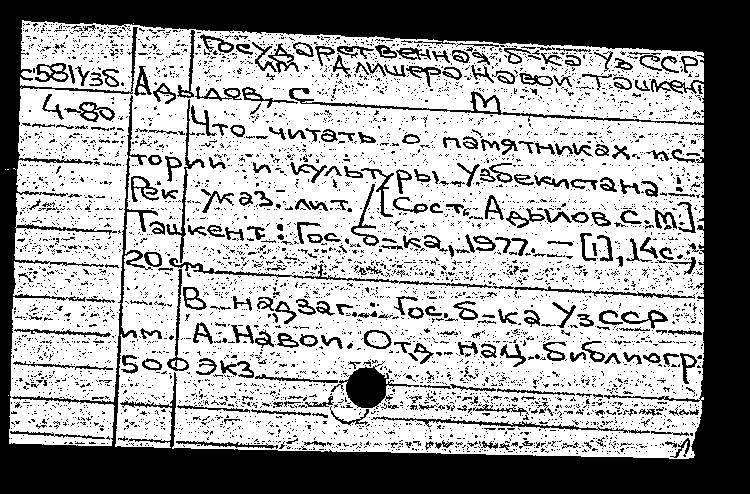 Государственная б-ка УзССР
им. Алишера Навои Ташкент
с581435.
4-80
Адылов, С М
Что читать о памятниках ис-
тории и культуры Узбекистана :
Рек указ. лит. / [Сост. Адылов С.М.].
Ташкент : Гос. б-ка, 1977. — [1], 14с.;
20 см.
В надзаг.: Гос. б-ка УзССР
им. А. Навои. Отд. нац. библиогр
500 экз.